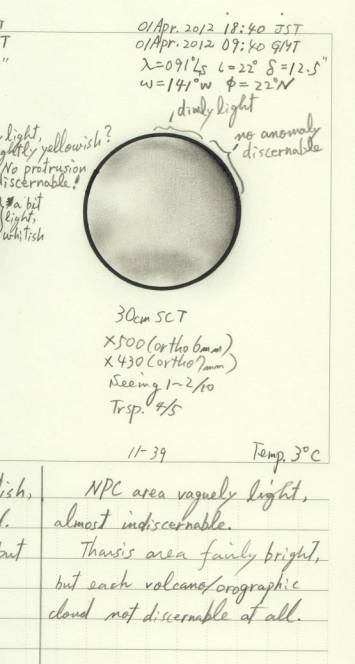 T
T
"
01 Apr. 2012 18:40 JST
01 Apr. 2012 09:40 GMT
λ=091°Ls ι=22° δ=12.5"
ω=141°W φ=22°N
dimly light
no anomaly
discernable
light,
ghtly yellowish?
No protrusion
iscernable!
a bit
light,
whitish
30cm SCT
×500 (ortho 6mm)
×430 (ortho 7mm)
Seeing 1~2/10
Trsp. 4/5
11-39
Temp. 3°C
ish,
l.
out
NPC area vaguely light,
almost indiscernable.
Tharsis area fairly bright,
but each volcano/orographic
cloud not discernable at all.